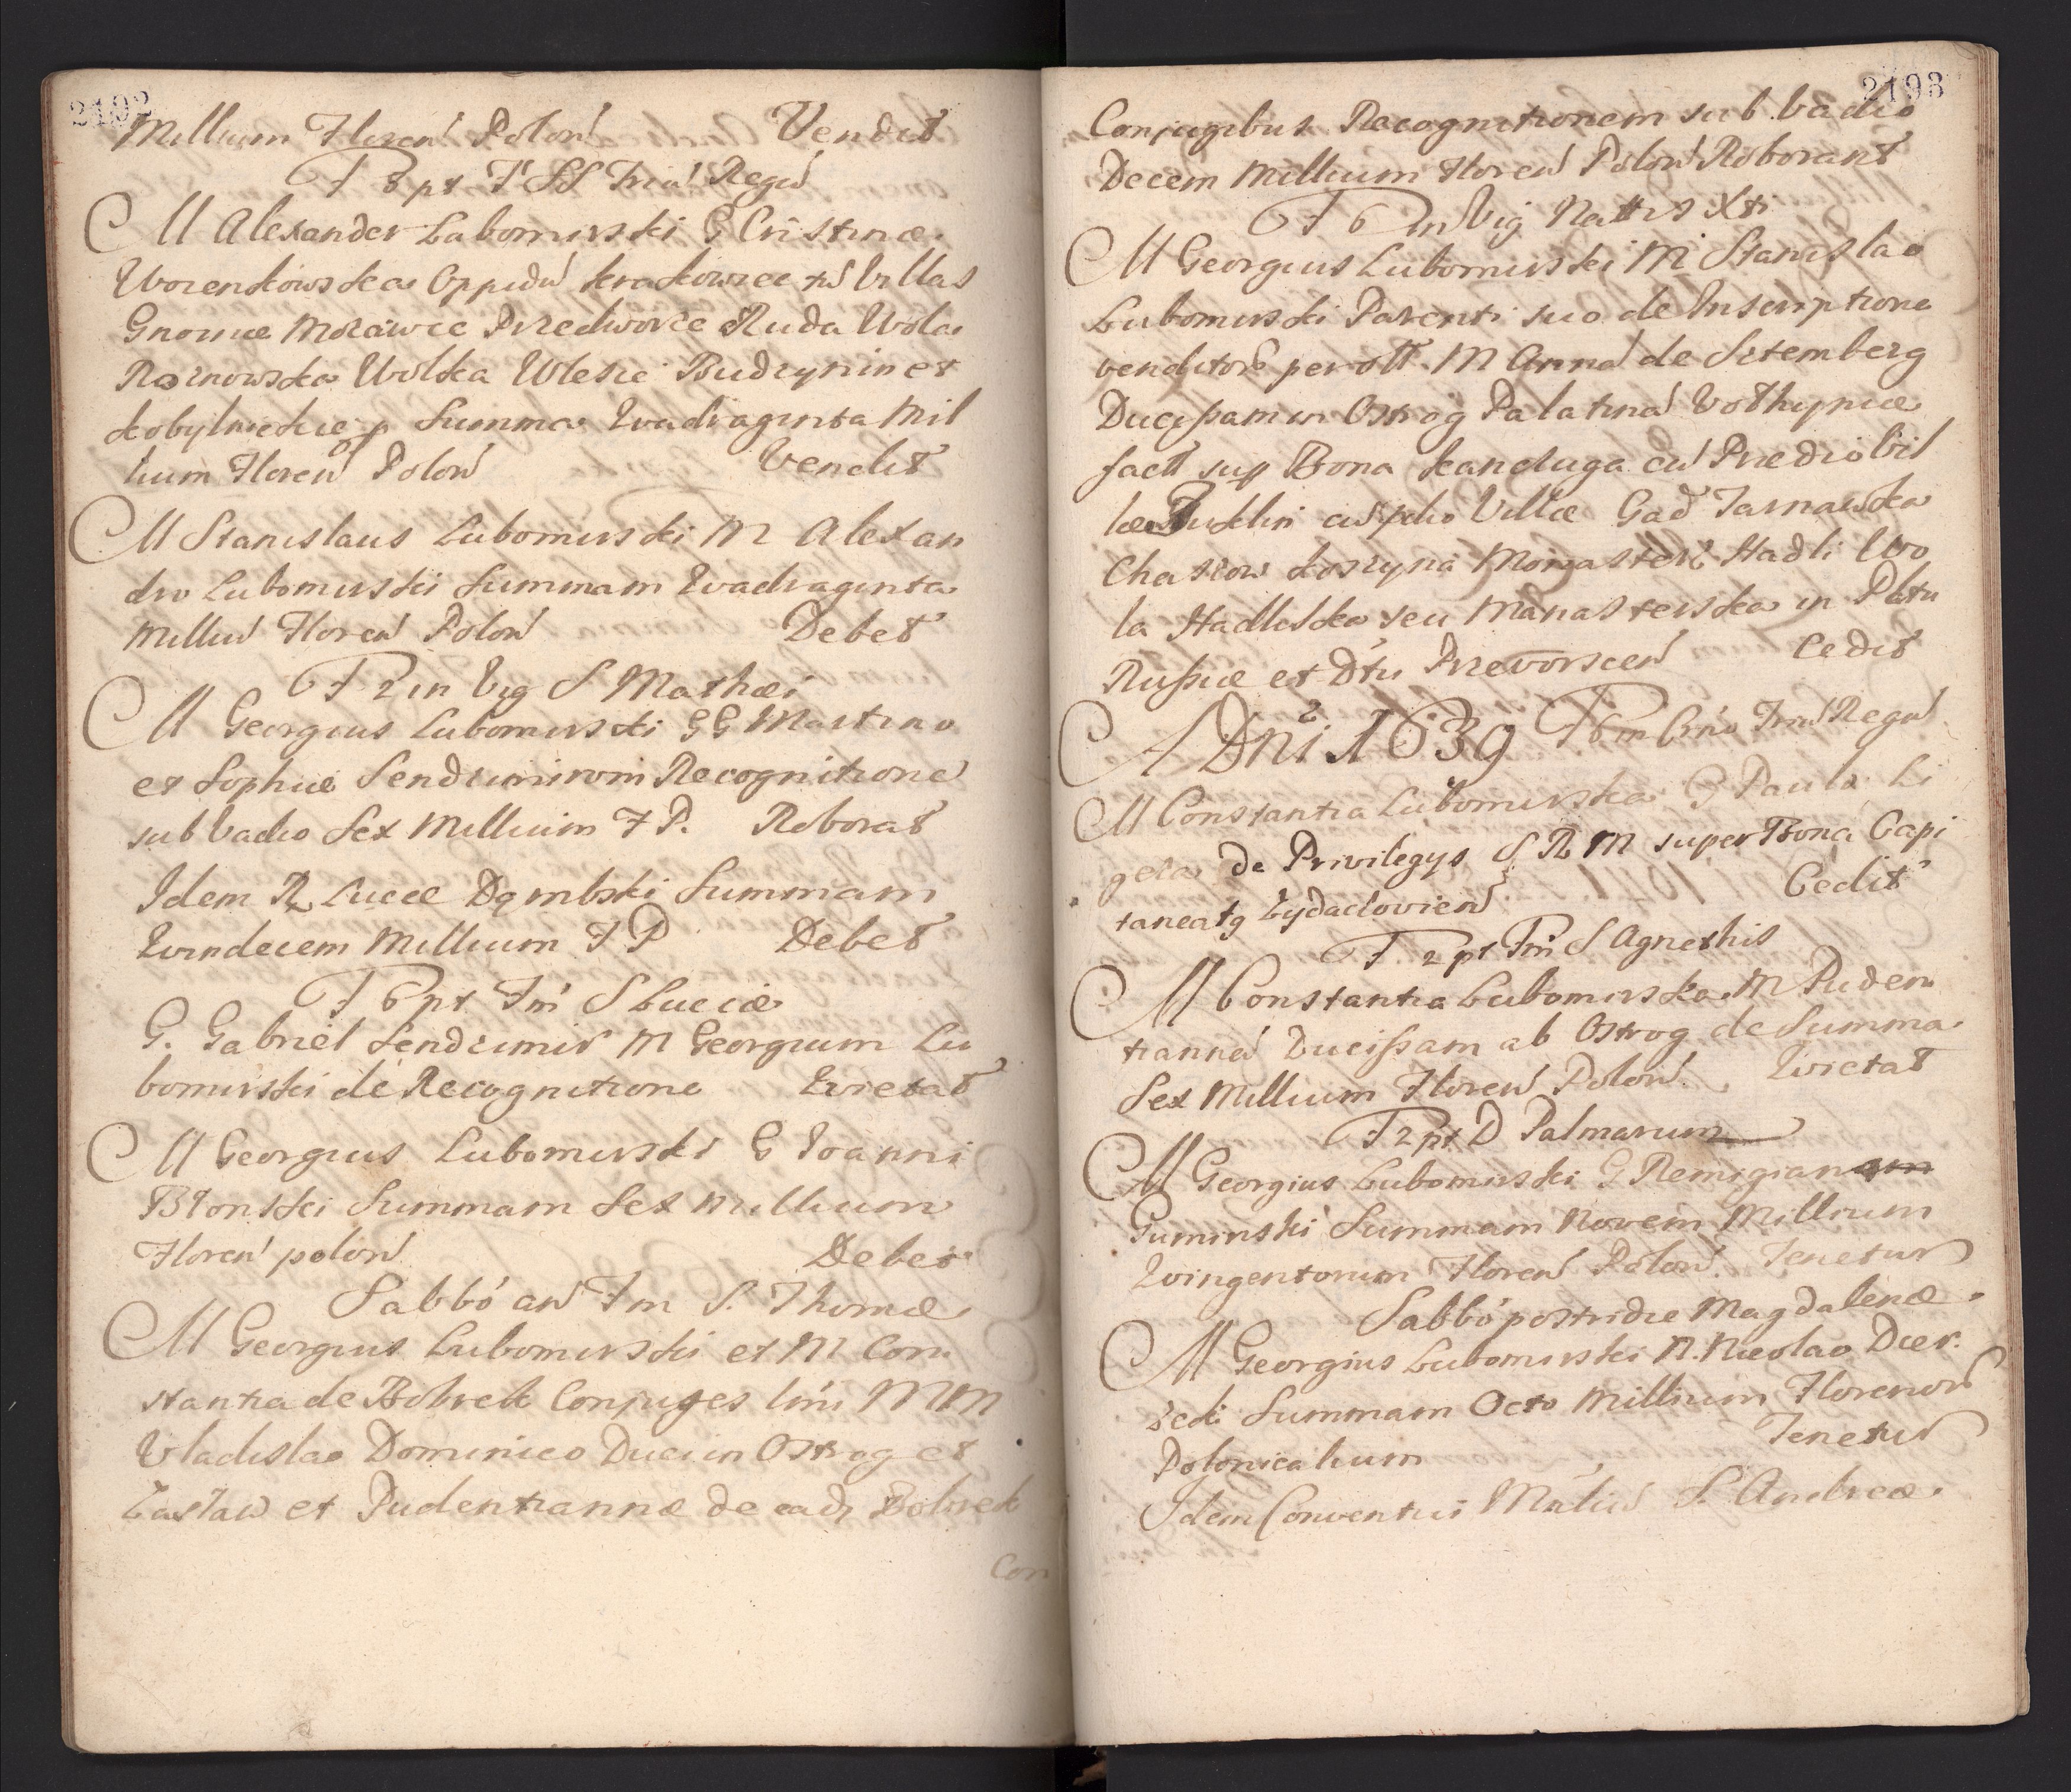 2192
Millium Floren Polon Vendit
F 3 pt F SS Triu Regu
M Alexander Lubomirski G Cristinæ
Worenkowska Oppidu Krakowiec tu Villas
Gnoinice Morawce Przedworze Ruda Wola
Roznowska Wolka Wlesie Budzynin et
Kobylnickie p Summa Quadraginta Mil
lium Floren Polon Vendit
M Stanislaus Lubomirski M Alexan
dro Lubomirski Summam Quadraginta
Milliu Floren Polon Debet
F 2 in Vig S Mathæi
M Georgius Lubomirski GG Martino
et Sophiæ Sendzimirom Recognitione
sub Vadio Sex Millium F P. Roborat
Idem R Lucæ Dąmbski Summam
Quindecem Millium F P Debet
F 6 pt Fm S Luciæ
G. Gabriel Sendzimir M Georgium Lu
bomirski de Recognitione Quietat
M Georgius Lubomirski G Joanni
Błonski Summam Sex Millium
Floren polon Debet
Sabbo an Fm S. Thomæ
M Georgius Lubomirski et M Con
stantia de Bobrek Conjuges Unii MM
Vladislao Dominico Duci in Ostrog et
Zasław et Pudentiannæ de ead Bobrek
Con
2193
Conjugibus Recognitionem sub vadio
Decem Millium Floren Polon Roborant
F 6 in Vig Nattis Xti
M Georgius Lubomirski M Stanislao
Lubomirski Parenti suo de Inscriptione
venditor per oll M Anna de Sztemberg
Ducissam in Ostrog Palatina Volhyniæ
fact sup Bona Kanczuga cu Prædio Vil
læ Zuklin cu pdio Villæ Gad Tarnawka
Chaszow Łoszyna Monasterz Hadli Wo
la Hadleska seu Manasterska in Pltu
Russiæ et Dtu Przevorscen Cedit
A Dni 1639 F 6 in Crno Triu Regu
M Constantia Lubomirska G Paulo Li
geza de Privilegys S R M super Bona Capi
taneatq Zydaclovien Cedit
F 2 pt Fm S Agnethis
M Constantia Lubomirska M Puden
tianna Ducissam ab Ostrog de Summa
Sex Millium Floren Polon. Quietat
F 2 pt D Palmarum
M Georgius Lubomirski G Remigian
Guminski Summam Novem Millium
Quingentorum Floren Polon. Tenetur
Sabbo postridie Magdalenæ
M Georgius Lubomirski R. Nicolao Dier
zek Summam Octo Millium Florenor
Polonicalium Tenetur
Idem Conventui Mlium S. Andreæ